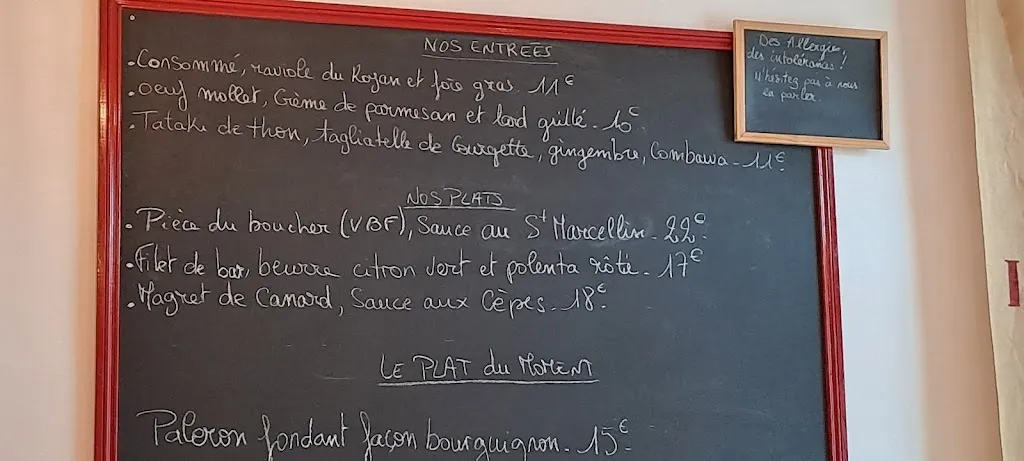 NOS ENTREES
.Consommé, raviole du Royan et foie gras. 11€
.oeuf mollet, Crème de parmesan et lard grillé. 10€.
.Tataki de thon, tagliatelle de Courgette, gingembre, Combawa - 11€.
NOS PLATS
. Pièce du boucher (VBF), Sauce au St Marcellin - 22€.
.Filet de bar, beurre citron vert et polenta rôtie - 17€
.Magret de Canard, Sauce aux Cèpes - 18€.
LE PLAT du MOMENT
Paleron fondant façon bourguignon - 15€.
Des Allergies,
des intolérances !
N'hésitez pas à nous
en parler.